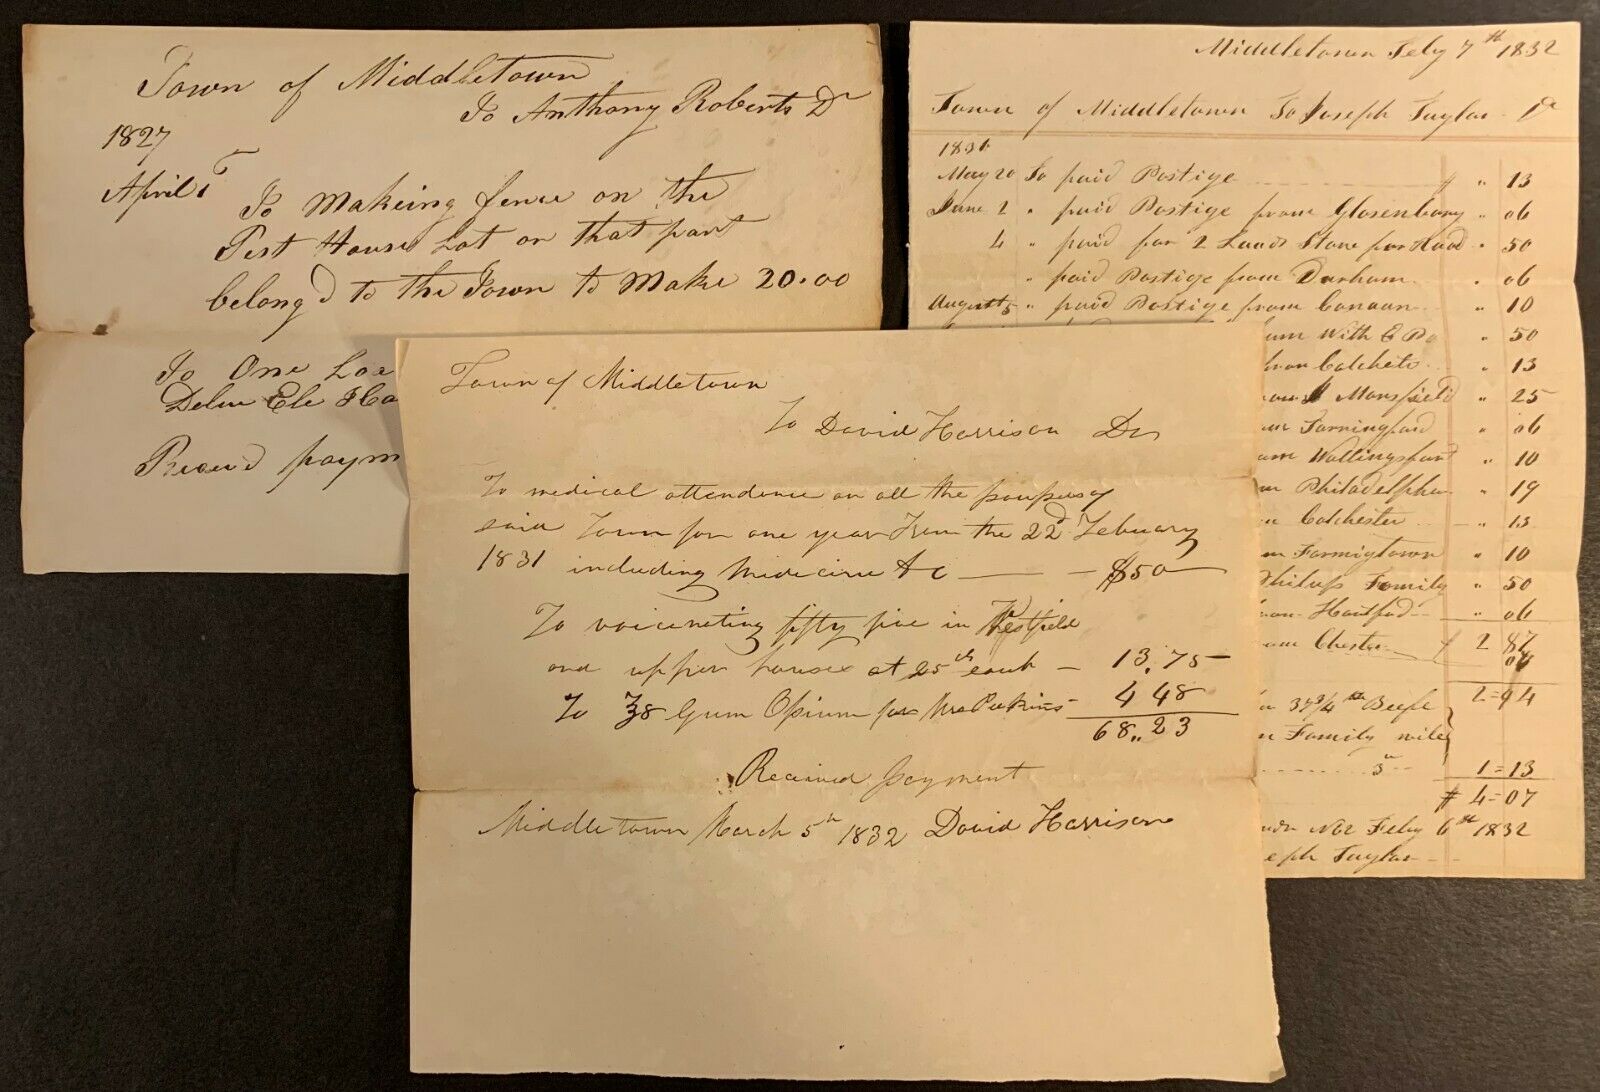 Town of Middletown
To Anthony Roberts Dr
1827
April 1st
To Makeing fence on the
Pest House Lot on that part
belong'd to the Town to Make 20.00
To One Loa
Delu Ele Ho
Receiv'd paym
Middletown Feby 7th 1832
Town of Middletown To Joseph Taylor Dr
1831
May 20 To paid Postige " 13
June 2 " paid Postige from Glosenbury " 06
4 " paid for 2 Loads Stone for Road " 50
" paid Postige from Durham " 06
August 5 " paid Postige from Canaan " 10
with " 50
Colchets " 13
Mansfield " 25
Farningford " 06
Wallingsford " 10
Philadelpha " 19
Colchester " 13
Farmigtown " 10
Philups Family " 50
Hartford " 06
Chester 2 87
07
2=94
37 3/4 lb Beefe
Family
3 1=13
# 4=07
No2 Feby 6th 1832
eph Taylor
Town of Middletown
To David Harrison Dr
To medical attendence on all the paupers of
said Town for one year From the 22d February
1831 including Medicine &c $50
To vaicenating fifty five in Westfield
and upper houses at 25cts each 13.75
To Gum Opium for Mrs Perkins 4 48
68.23
Received payment
Middletown March 5th 1832 David Harrison